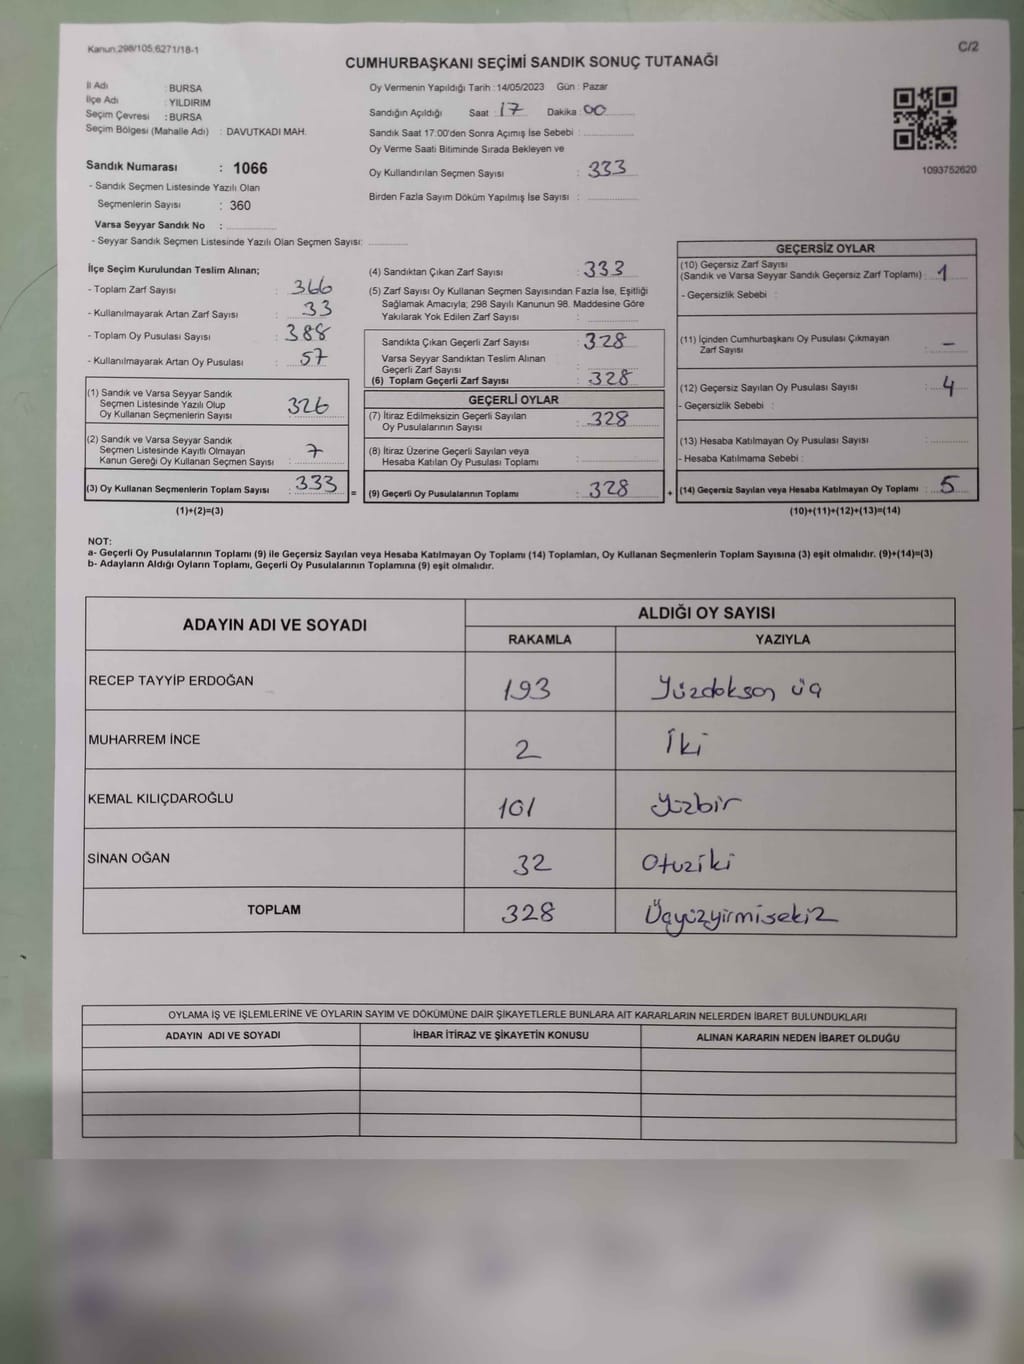 Kanun.298/105,6271/18-1
C/2
CUMHURBAŞKANI SEÇİMİ SANDIK SONUÇ TUTANAĞI
İl Adı : BURSA
İlçe Adı : YILDIRIM
Seçim Çevresi : BURSA
Seçim Bölgesi (Mahalle Adı) : DAVUTKADI MAH.
Oy Vermenin Yapıldığı Tarih : 14/05/2023 Gün : Pazar
Sandığın Açıldığı Saat : 17 Dakika : 00
Sandık Saat 17:00'den Sonra Açımış İse Sebebi :
Oy Verme Saati Bitiminde Sırada Bekleyen ve
Oy Kullandırılan Seçmen Sayısı : 333
Birden Fazla Sayım Döküm Yapılmış İse Sayısı :
1093752620
Sandık Numarası : 1066
- Sandık Seçmen Listesinde Yazılı Olan
Seçmenlerin Sayısı : 360
Varsa Seyyar Sandık No :
- Seyyar Sandık Seçmen Listesinde Yazılı Olan Seçmen Sayısı:
İlçe Seçim Kurulundan Teslim Alınan;
- Toplam Zarf Sayısı : 366
- Kullanılmayarak Artan Zarf Sayısı : 33
- Toplam Oy Pusulası Sayısı : 388
- Kullanılmayarak Artan Oy Pusulası : 57
(1) Sandık ve Varsa Seyyar Sandık
Seçmen Listesinde Yazılı Olup
Oy Kullanan Seçmenlerin Sayısı : 326
(2) Sandık ve Varsa Seyyar Sandık
Seçmen Listesinde Kayıtlı Olmayan
Kanun Gereği Oy Kullanan Seçmen Sayısı : 7
(3) Oy Kullanan Seçmenlerin Toplam Sayısı : 333
(1)+(2)=(3)
(4) Sandıktan Çıkan Zarf Sayısı : 333
(5) Zarf Sayısı Oy Kullanan Seçmen Sayısından Fazla İse, Eşitliği
Sağlamak Amacıyla; 298 Sayılı Kanunun 98. Maddesine Göre
Yakılarak Yok Edilen Zarf Sayısı :
Sandıkta Çıkan Geçerli Zarf Sayısı : 328
Varsa Seyyar Sandıktan Teslim Alınan
Geçerli Zarf Sayısı :
(6) Toplam Geçerli Zarf Sayısı : 328
GEÇERLİ OYLAR
(7) İtiraz Edilmeksizin Geçerli Sayılan
Oy Pusulalarının Sayısı : 328
(8) İtiraz Üzerine Geçerli Sayılan veya
Hesaba Katılan Oy Pusulası Toplamı :
= (9) Geçerli Oy Pusulalarının Toplamı : 328
GEÇERSİZ OYLAR
(10) Geçersiz Zarf Sayısı
(Sandık ve Varsa Seyyar Sandık Geçersiz Zarf Toplamı) : 1
- Geçersizlik Sebebi :
(11) İçinden Cumhurbaşkanı Oy Pusulası Çıkmayan
Zarf Sayısı : –
(12) Geçersiz Sayılan Oy Pusulası Sayısı : 4
- Geçersizlik Sebebi :
(13) Hesaba Katılmayan Oy Pusulası Sayısı :
- Hesaba Katılmama Sebebi :
+ (14) Geçersiz Sayılan veya Hesaba Katılmayan Oy Toplamı : 5
(10)+(11)+(12)+(13)=(14)
NOT:
a- Geçerli Oy Pusulalarının Toplamı (9) ile Geçersiz Sayılan veya Hesaba Katılmayan Oy Toplamı (14) Toplamları, Oy Kullanan Seçmenlerin Toplam Sayısına (3) eşit olmalıdır. (9)+(14)=(3)
b- Adayların Aldığı Oyların Toplamı, Geçerli Oy Pusulalarının Toplamına (9) eşit olmalıdır.
ADAYIN ADI VE SOYADI
ALDIĞI OY SAYISI
RAKAMLA YAZIYLA
RECEP TAYYİP ERDOĞAN 193 Yüzdokson üç
MUHARREM İNCE 2 İki
KEMAL KILIÇDAROĞLU 101 Yüzbir
SİNAN OĞAN 32 Otuziki
TOPLAM 328 Üçyüzyirmisekiz
OYLAMA İŞ VE İŞLEMLERİNE VE OYLARIN SAYIM VE DÖKÜMÜNE DAİR ŞİKAYETLERLE BUNLARA AİT KARARLARIN NELERDEN İBARET BULUNDUKLARI
ADAYIN ADI VE SOYADI İHBAR İTİRAZ VE ŞİKAYETİN KONUSU ALINAN KARARIN NEDEN İBARET OLDUĞU